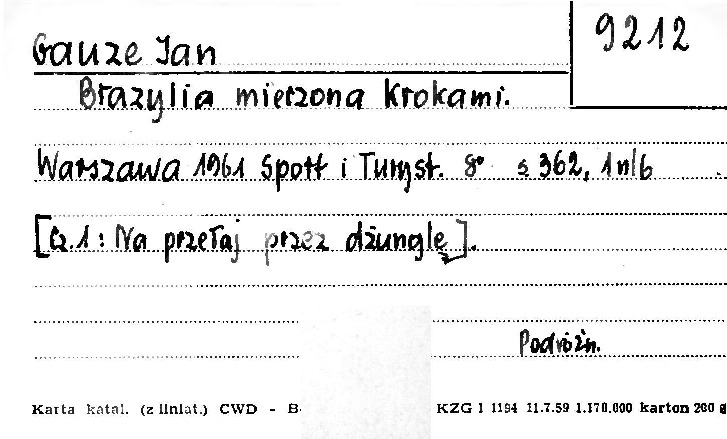 9212
Gauze Jan
Brazylia mierzona krokami.
Warszawa 1961 Sport i Turyst. 8° s 362, 1 nlb
[Cz.1: Na przełaj przez dżunglę].
Podróżn.
Karta katal. (z liniat.) CWD - B- KZG 1 1194 11.7.59 1.170.000 karton 200 g